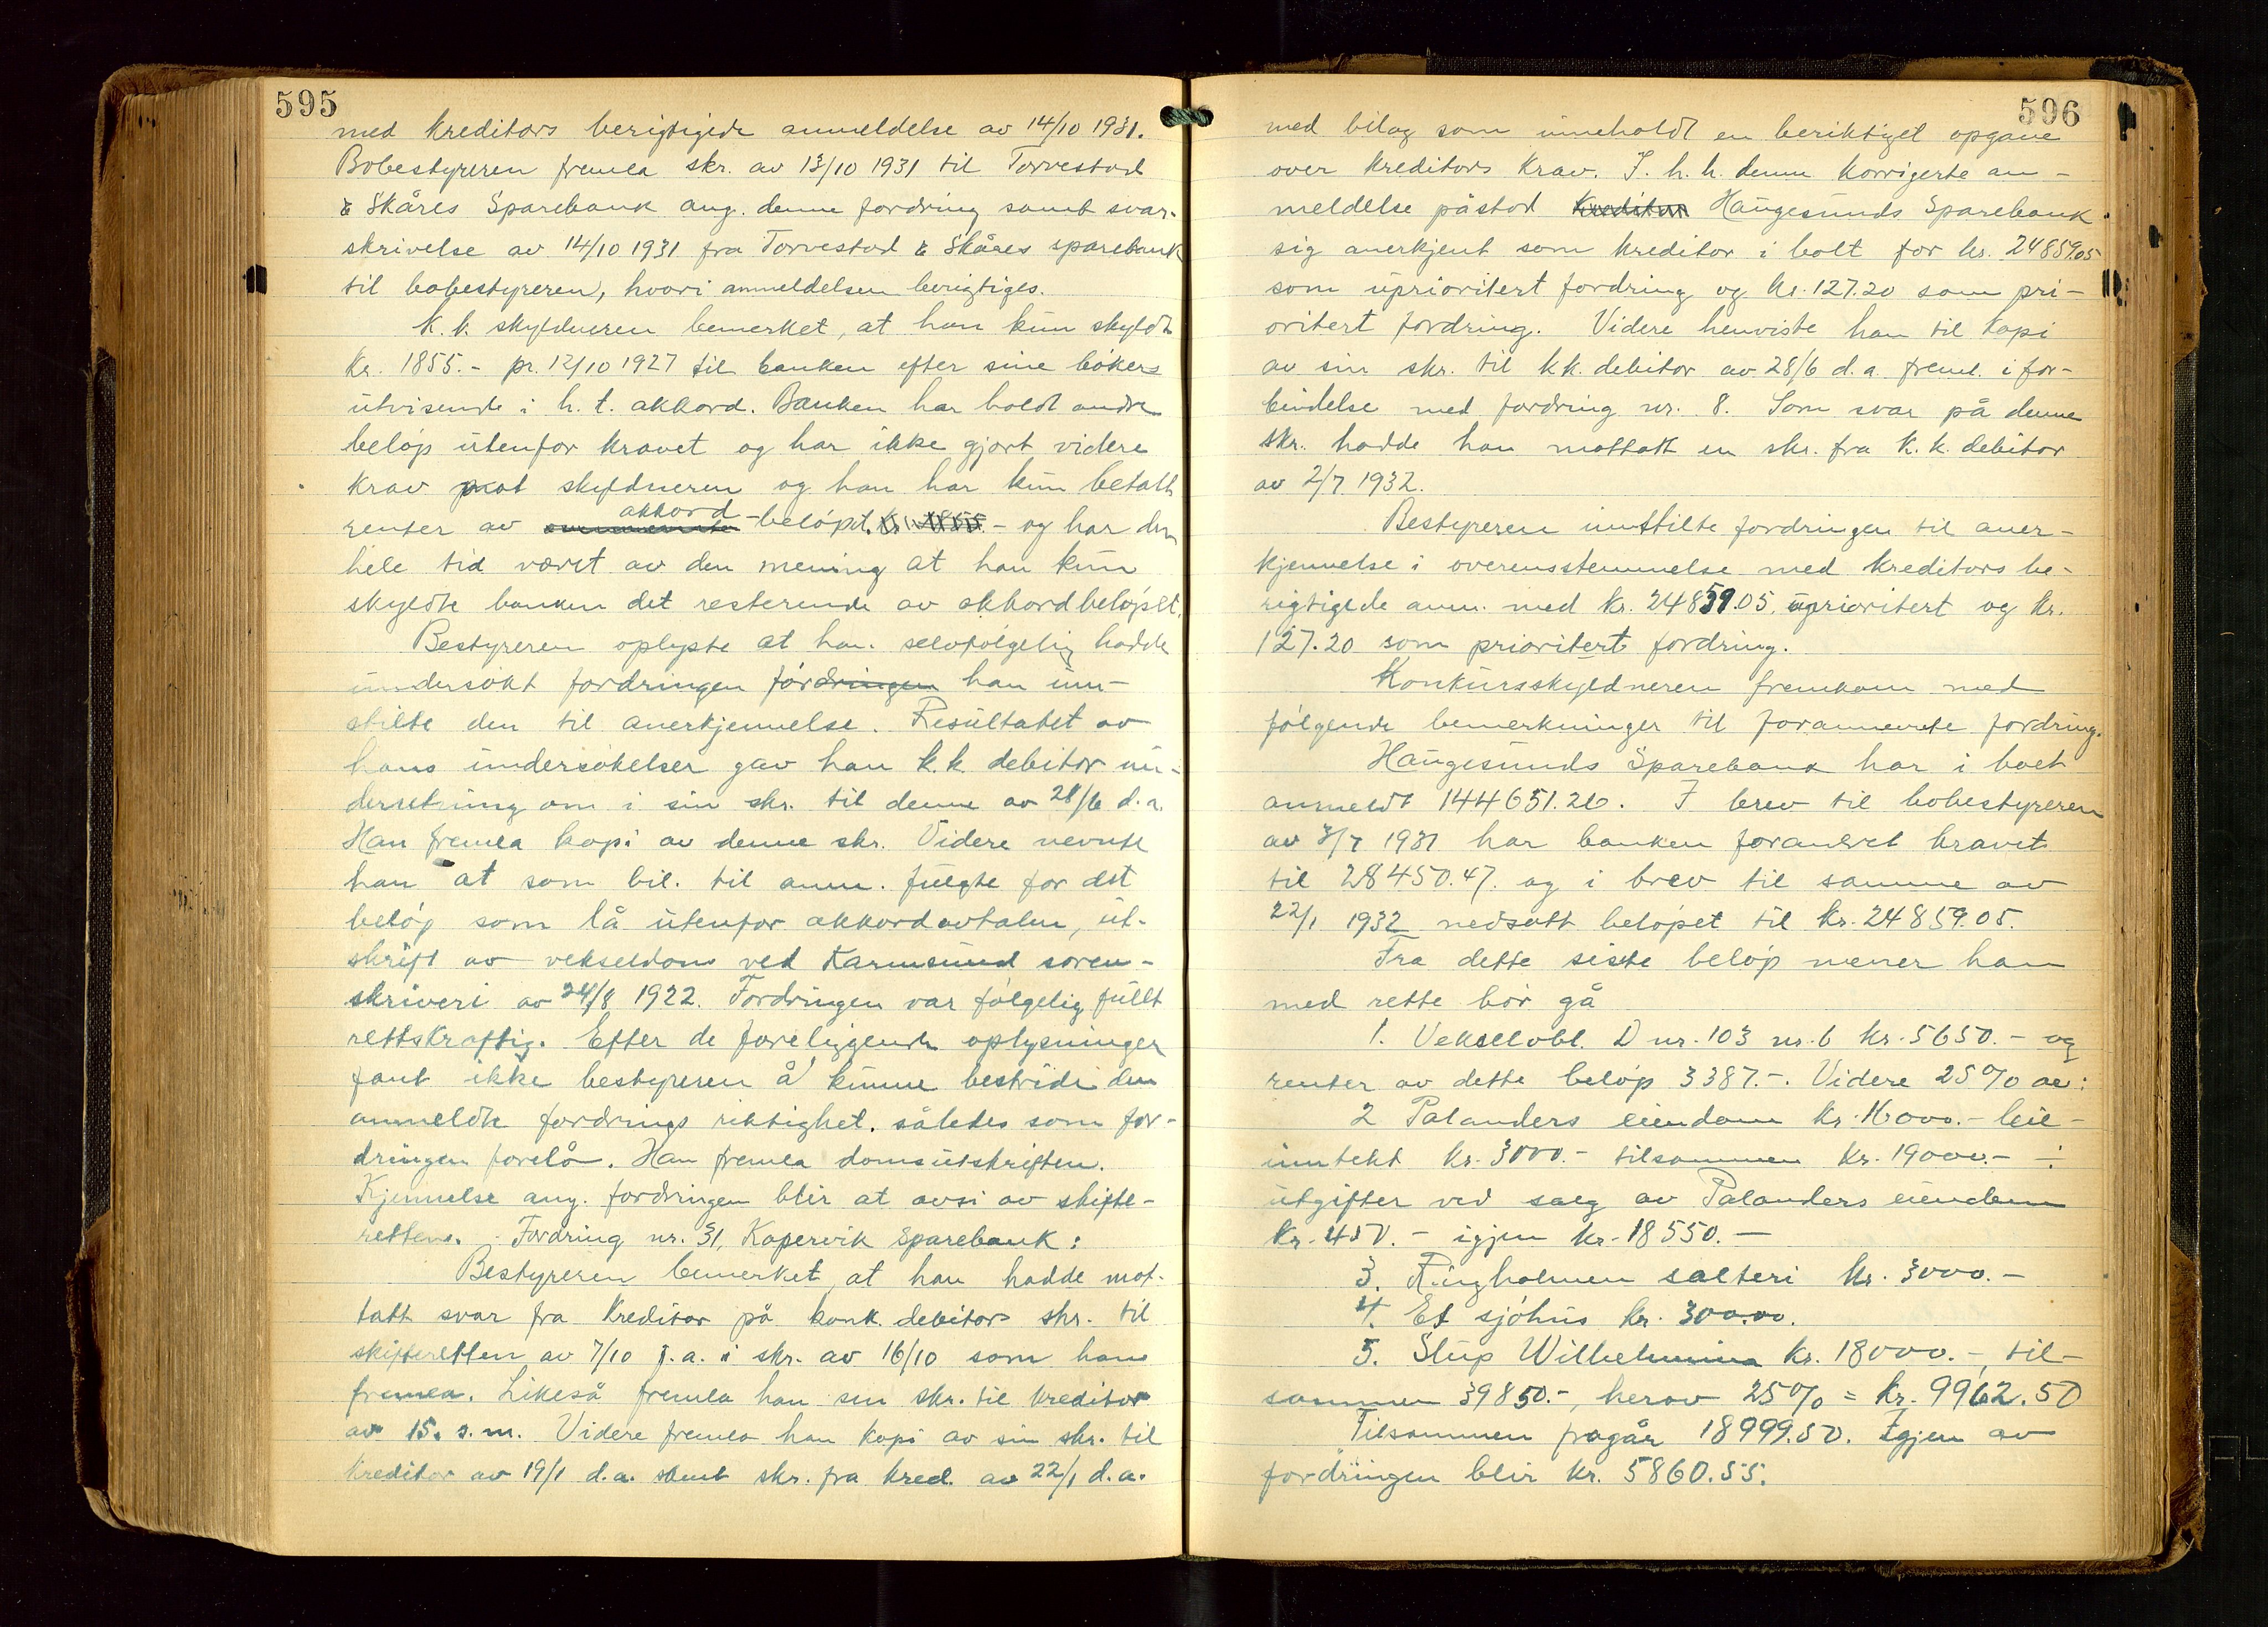 595
med kreditors berigtigede anmeldelse av 14/10 1931.
Bobestyreren fremla skr. av 13/10 1931 til Torvestad
& Skåres Sparebank ang. denne fordring samt svar-
skrivelse av 14/10 1931 fra Torvestad & Skåres sparebank
til bobestyreren, hvori anmeldelsen berigtiges.
K. k. skyldneren bemerket, at han kun skyldte
Kr. 1855.- pr. 12/10 1927 til banken efter sine bøkers
utvisende i h. t. akkord. Banken har holdt andre
beløp utenfor kravet og har ikke gjort videre
krav mot skyldneren og han har kun betalt
renter av akkord-beløpet - og har den
hele tid været av den mening at han kun
skyldte banken det resterende av akkordbeløpet.
Bestyreren oplyste at han selvfølgelig hadde
undersøkt fordringen fordringen han inn-
stilte den til anerkjennelse. Resultatet av
hans undersøkelser gav han k.k. debitor un-
derretning om i sin skr. til denne av 28/6 d.a.
Han fremla kopi av denne skr. Videre nevnte
han at som bil. til anm. fulgte for det
beløp som lå utenfor akkordavtalen, ut-
skrift av vekseldom ved Karmsund soren-
skriveri av 24/8 1922. Fordringen var følgelig fullt
rettskraftig. Efter de foreliggende oplysninger
fant ikke bestyreren å kunne bestride den
anmeldte fordrings riktighet, således som for-
dringen forelå. Han fremla domsutskriften.
Kjennelse ang. fordringen blir at avsi av skifte-
retten. Fordring nr. 31, Kopervik Sparebank:
Bestyreren bemerket, at han hadde mot-
tatt svar fra kreditor på konk. debitors skr. til
skifteretten av 7/10 f.a. i skr. av 16/10 som han
fremla. Likeså fremla han sin skr. til kreditor
av 15. s.m. Videre fremla han kopi av sin skr. til
kreditor av 19/1 d.a. samt skr. fra kred. av 22/1 d.a.
596
med bilag som inneholdt en beriktiget opgave
over kreditors krav. I. h. h. denne korrigerte an-
meldelse påstod kreditor Haugesunds Sparebank
sig anerkjent som kreditor i boet for kr. 24859.05
som uprioritert fordring og kr. 127.20 som pri-
oritert fordring. Videre henviste han til kopi
av sin skr. til kk. debitor av 28/6 d.a. freml. i for-
bindelse med fordring nr. 8. Som svar på denne
skr. hadde han mottatt en skr. fra k. k. debitor
av 2/7 1932.
Bestyreren innstilte fordringen til aner-
kjennelse i overensstemmelse med kreditors be-
rigtigede anm. med kr. 24859.05 uprioritert og kr.
127.20 som prioritert fordring.
Konkursskyldneren fremkom med
følgende bemerkninger til forannevnte fordring.
Haugesunds Sparebank har i boet
anmeldt 144651.26. I brev til bobestyreren
av 3/7 1931 har banken forandret kravet
til 28450.47. og i brev til samme av
22/1 1932 nedsatt beløpet til kr. 24859.05.
Fra dette siste beløp mener han
med rette bør gå
1. Vekselobl. D nr. 103 nr. 6 kr. 5650.- og
renter av dette beløp 3387.-. Videre 25% av:
2 Palanders eiendom kr. 16000.- leie-
inntekt kr. 3000.- tilsammen kr. 19000.- ÷
utgifter ved salg av Palanders eiendom
kr. 450.- igjen kr. 18550.-
3. Ringholmen salteri kr. 3000.-
4. Et sjøhus kr. 300.00.
5. Slup Wilhelmina kr. 18000.-, til-
sammen 39850.-, herav 25% = kr. 9962.50
Tilsammen fragår 18999.50. Igjen av
fordringen blir kr. 5860.55.